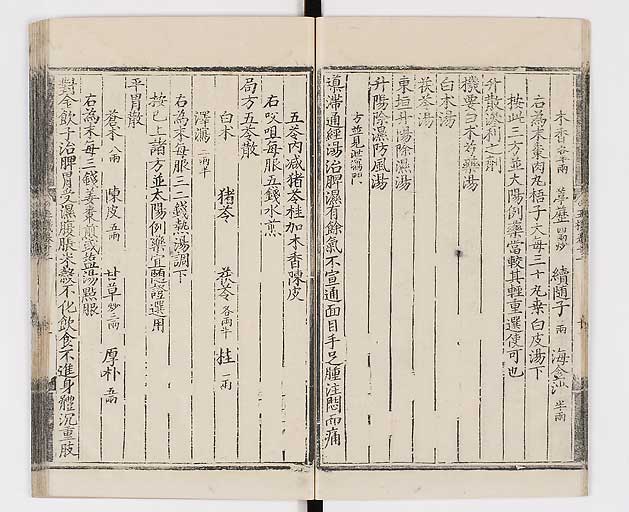 木香 各半兩 葶藶 四兩炒 續随子 一兩 海金沙 半兩
右為末棗肉丸梧子大每三十丸桑白皮湯下
按此三方並太陽例藥當較其輕重選使可也
升散滲利之劑
機要白朮芍藥湯
白朮湯
茯苓湯
東垣升陽除濕湯
升陽除濕防風湯
方並見泄瀉門
導滯通經湯治脾濕有餘氣不宣通面目手足腫注悶而痛
五苓内減猪苓桂加木香陳皮
右㕮咀每服五錢水煎
局方五苓散
白朮 猪苓 茯苓 各兩半 桂 一兩
澤瀉 二兩半
右為末每服三二錢熱湯調下
按已上諸方並太陽例藥宜慿證選用
平胃散
蒼朮 八兩 陳皮 五兩 甘草 炒三兩 厚朴 五兩
右為末每三錢姜棗煎或盐湯點服
對金飲子治脾胃受濕腹脹米穀不化飲食不進身體沉重肢